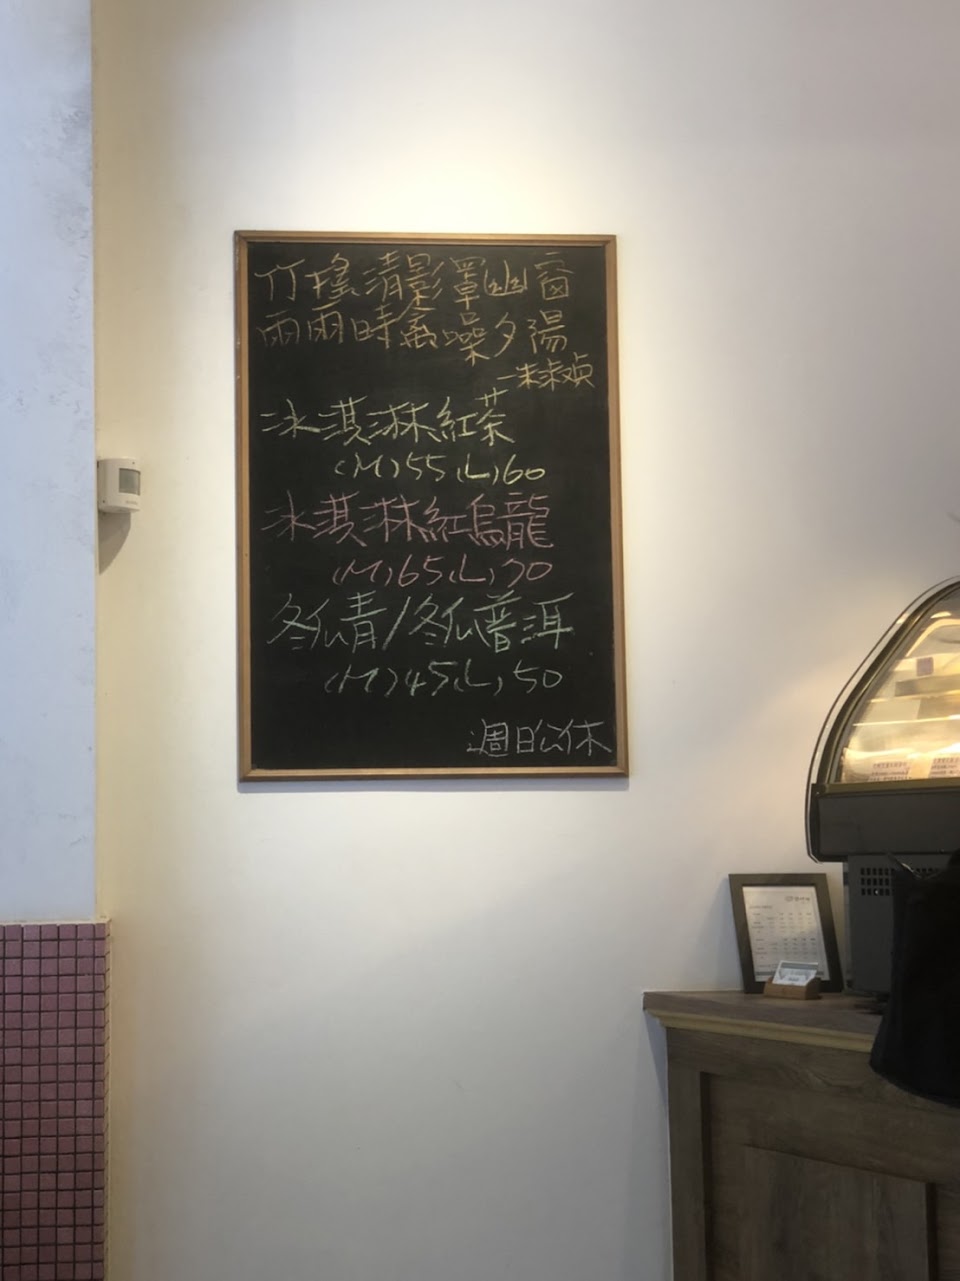 竹搖清影罩幽窗
兩兩時禽噪夕陽
一朱淑貞
冰淇淋紅茶
(M)55(L)60
冰淇淋紅烏龍
(M)65(L)70
冬瓜青/冬瓜普洱
(M)45(L)50
週日公休